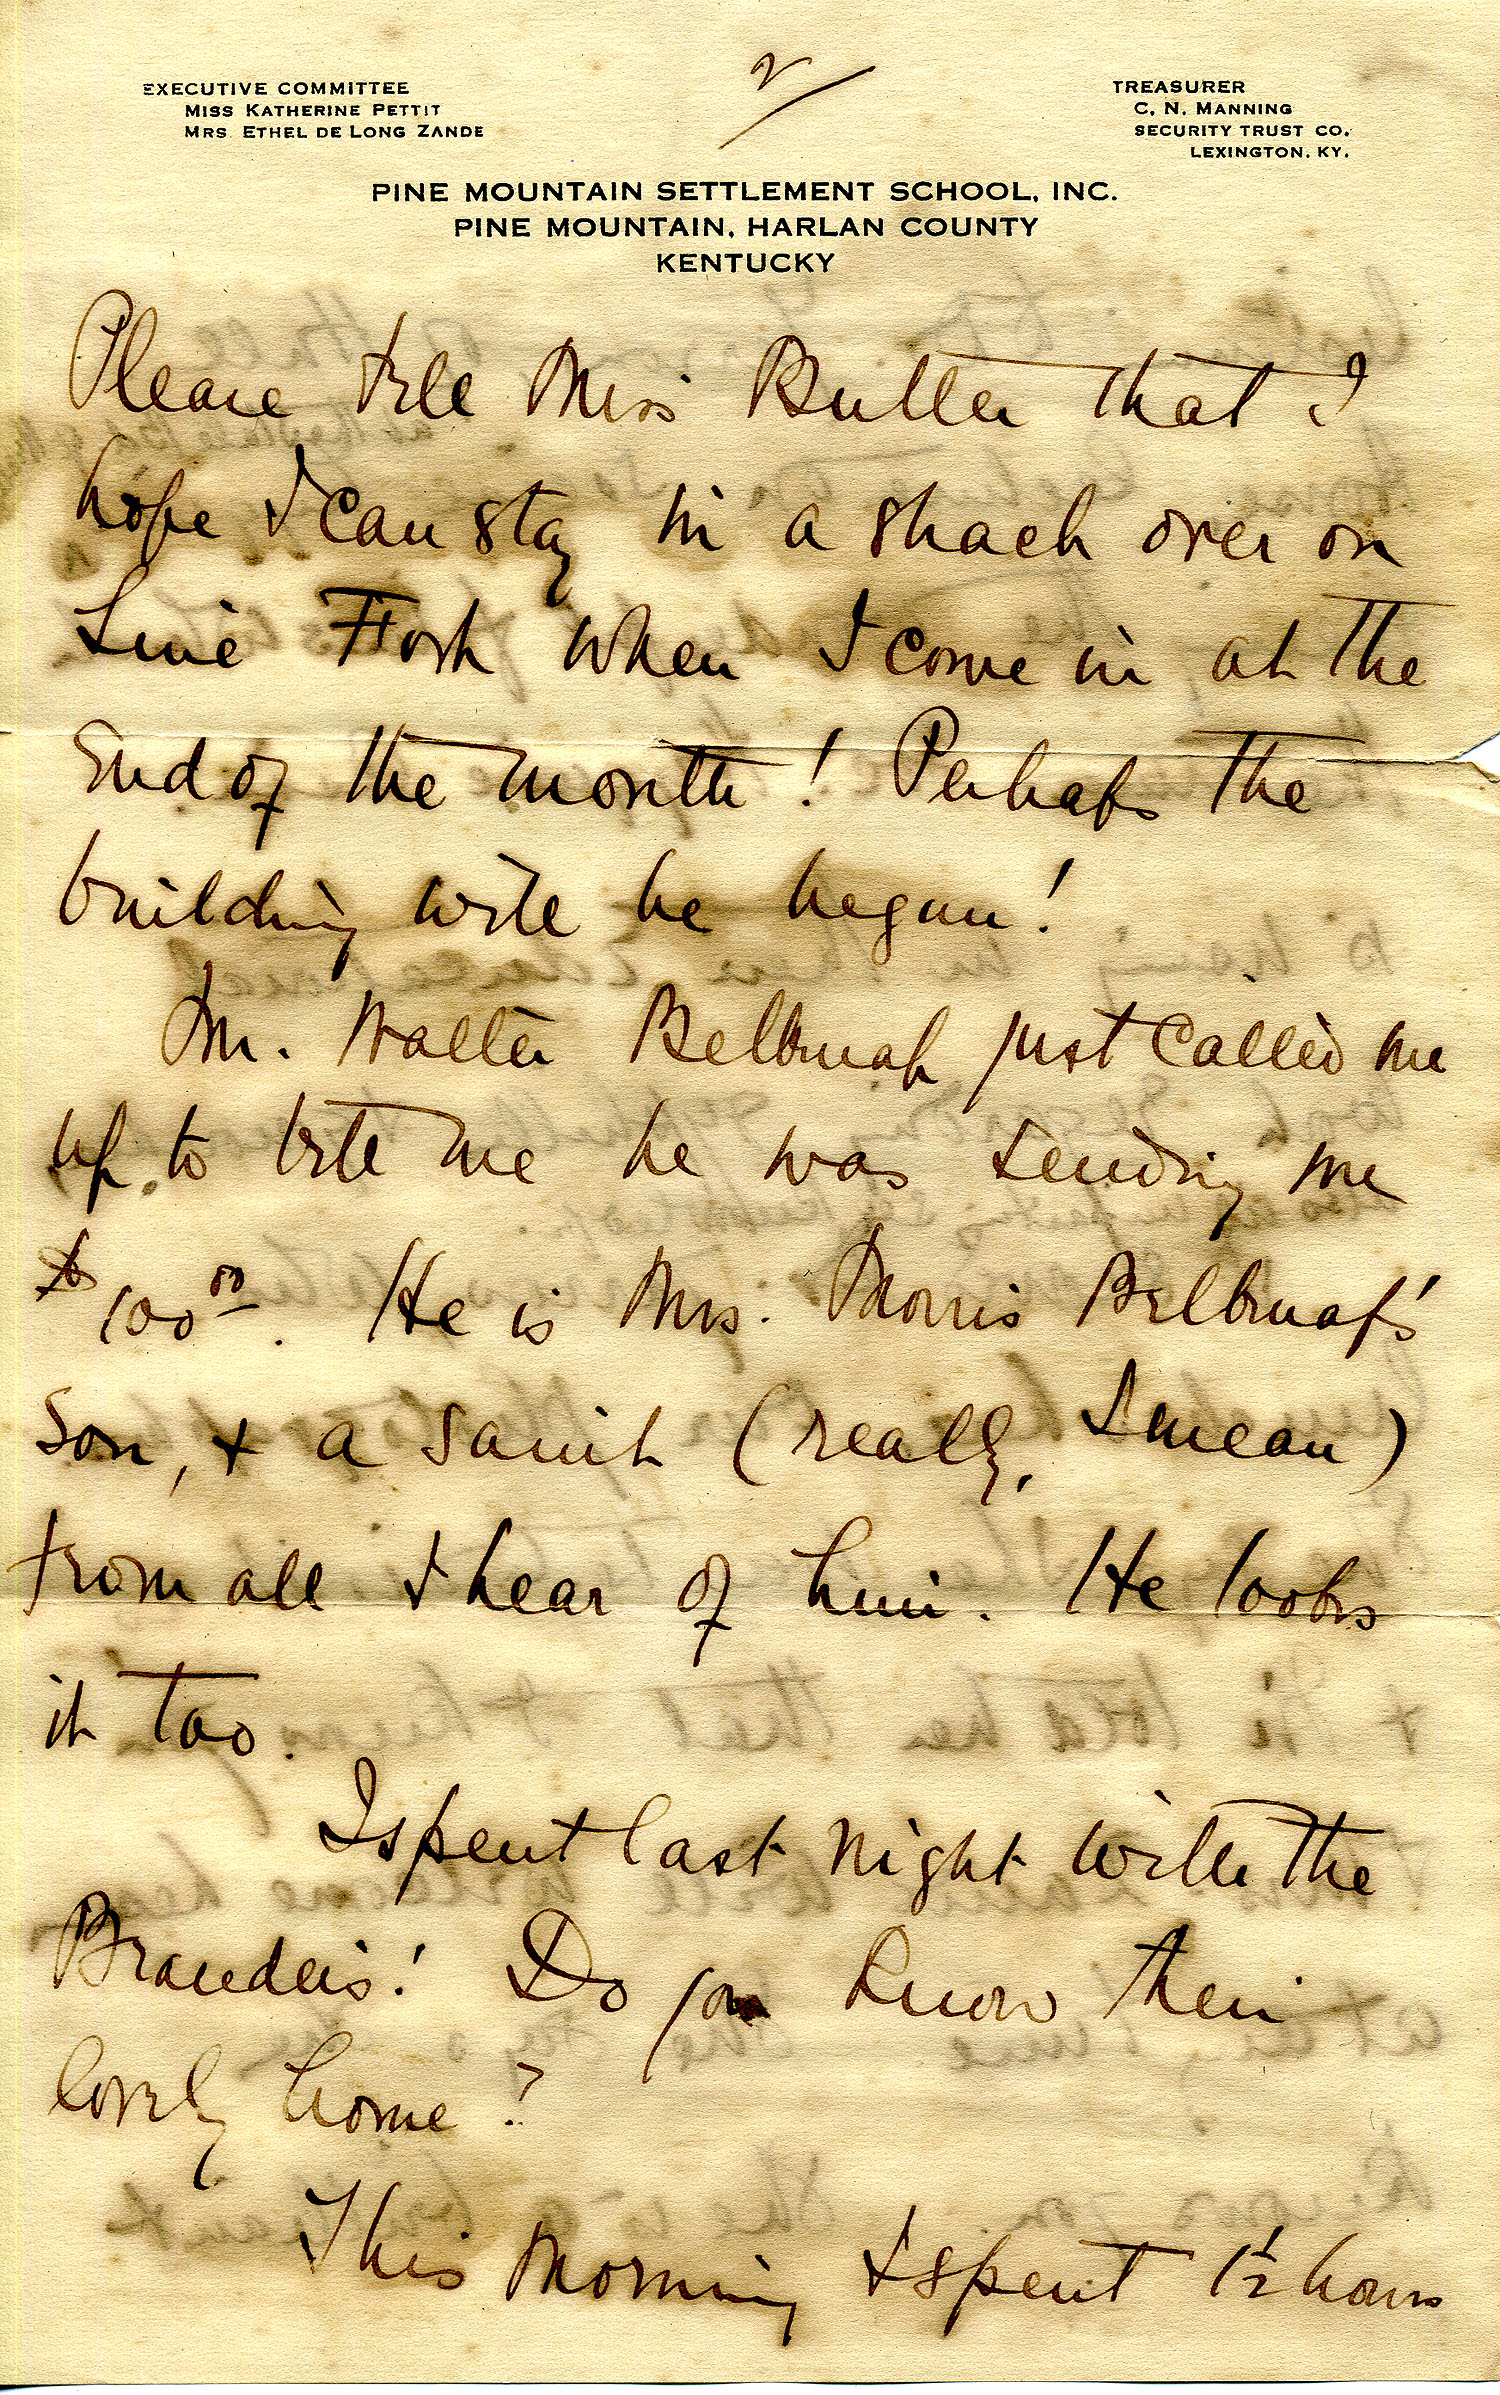 2/
EXECUTIVE COMMITTEE
MISS KATHERINE PETTIT
MRS. ETHEL DE LONG ZANDE
TREASURER
C. N. MANNING
SECURITY TRUST CO.
LEXINGTON. KY.
PINE MOUNTAIN SETTLEMENT SCHOOL, INC.
PINE MOUNTAIN, HARLAN COUNTY
KENTUCKY
Please tell Miss Butler that I
hope I can stay in a shack over on
Line Fork when I come in at the
end of the month! Perhaps the
building will be begun!
Mr. Walter Belknap just called me
up to tell me he was sending me
$100.00. He is Mrs. Morris Belknap's
son, + a saint (really, I mean)
from all I hear of him. He looks
it too.
I spent last night with the
Brandeis! Do you know their
lovely home?
This morning I spent 1½ hours